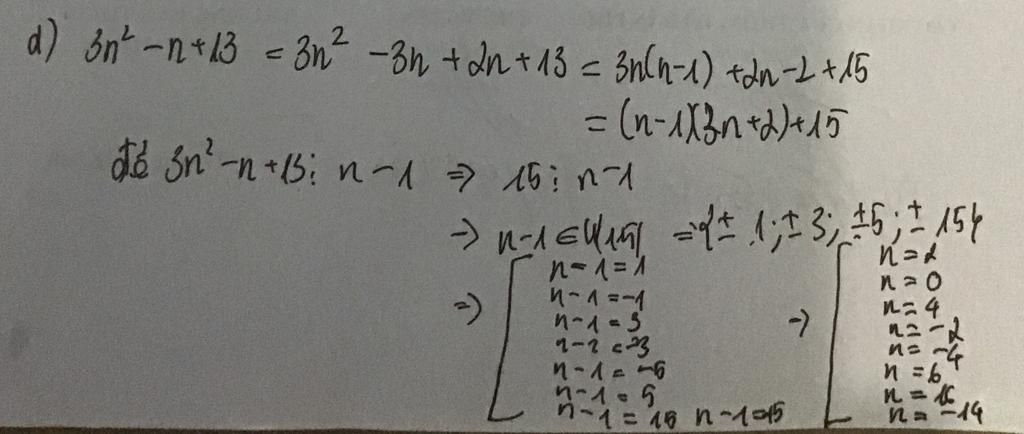 d) 3n² - n + 13 = 3n² - 3n + 2n + 13 = 3n(n-1) + 2n - 2 + 15
= (n-1)(3n+2) + 15
để 3n² - n + 13 ⋮ n - 1 => 15 ⋮ n - 1
-> n - 1 ∈ Ư(15) = {± 1; ± 3; ±5; ± 15}
=> [ n - 1 = 1 -> [ n = 2
n - 1 = -1 n = 0
n - 1 = 3 n = 4
n - 1 = -3 n = -2
n - 1 = -5 n = -4
n - 1 = 5 n = 6
n - 1 = 15 n - 1 = -15 n = 16
n = -14